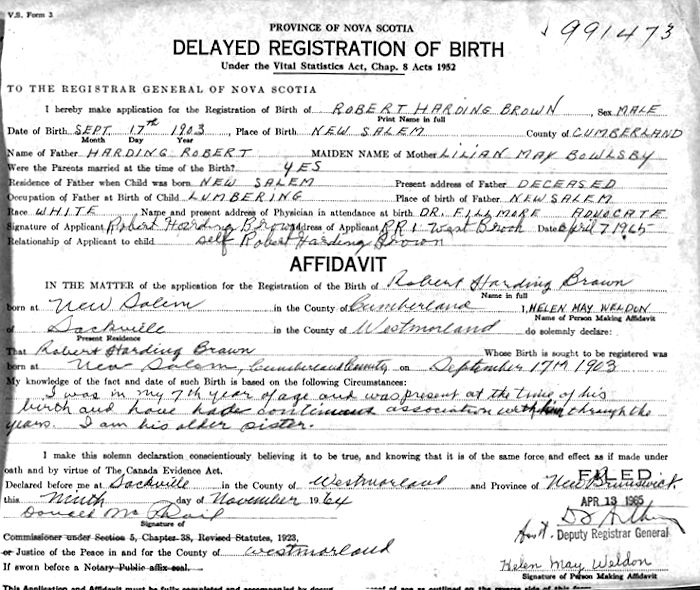 V.S. Form 3
991473
PROVINCE OF NOVA SCOTIA
DELAYED REGISTRATION OF BIRTH
Under the Vital Statistics Act, Chap. 8 Acts 1952
TO THE REGISTRAR GENERAL OF NOVA SCOTIA
I hereby make application for the Registration of Birth of ROBERT HARDING BROWN, Sex MALE
Print Name in full
Date of Birth SEPT. 17th 1903, Place of Birth NEW SALEM County of CUMBERLAND
Month Day Year
Name of Father HARDING ROBERT MAIDEN NAME of Mother LILIAN MAY BOWLSBY
Were the Parents married at the time of the Birth? YES
Residence of Father when Child was born NEW SALEM Present address of Father DECEASED
Occupation of Father at Birth of Child LUMBERING Place of birth of Father NEW SALEM
Race WHITE Name and present address of Physician in attendance at birth DR. FILLMORE ADVOCATE
Signature of Applicant Robert Harding Brown Address of Applicant R.R.1. West Brook Date April 7 1965
Relationship of Applicant to child self Robert Harding Brown
AFFIDAVIT
IN THE MATTER of the application for the Registration of the Birth of Robert Harding Brown
Name in full
born at New Salem in the County of Cumberland I, HELEN MAY WELDON
Name of Person Making Affidavit
of Sackville in the County of Westmorland do solemnly declare:
Present Residence
That Robert Harding Brown Whose Birth is sought to be registered was
born at New Salem, Cumberland County on September 17TH 1903
My knowledge of the fact and date of such Birth is based on the following Circumstances:
I was in my 7th year of age and was present at the time of his
birth and have had continuous association with him through the
years. I am his older sister.
I make this solemn declaration conscientiously believing it to be true, and knowing that it is of the same force and effect as if made under
oath and by virtue of The Canada Evidence Act.
Declared before me at Sackville in the County of Westmorland and Province of New Brunswick.
FILED
this Ninth day of November 1964
APR 13 1965
Donald Mc Phail
Signature of
Asst. Deputy Registrar General
Commissioner under Section 5, Chapter 38, Revised Statutes, 1923,
or Justice of the Peace in and for the County of Westmorland
Helen May Weldon
If sworn before a Notary Public affix seal.
Signature of Person Making Affidavit
This Application and Affidavit must be fully completed and accompanied by documentary proof of age as outlined on the reverse side of this form.